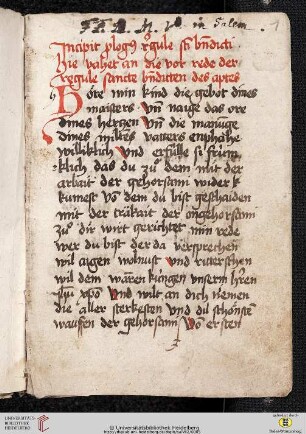 in Salem
1
Incipit plogus regule sti bndicti
Hie vahet an die vor rede der
regule sancte bndicten des aptes
Höre min kind die gebot dines
maisters Vnd naige das ore
dines herzen Vnd die manunge
dines miltes vatters emphahe
willklich Vnd erfülle si frúm
klich das du zu dem mit der
arbait der gehorsami wider k
kumest vō dem du bist geschaiden
mit der trakait der ungehorsami
zu dir wirt gerichtet min rede
wer du bist der da versprechen
wil aigen wolnust Vnd ritterschen
wil dem waren kúngen vnserm hren
ihu xpo Vnd wilt an dich nemen
die aller sterkesten Vnd du schönste
wauffen der gehorsami Vō ersten
UNIVERSITÄTS-
BIBLIOTHEK
HEIDELBERG
© Universitätsbibliothek Heidelberg